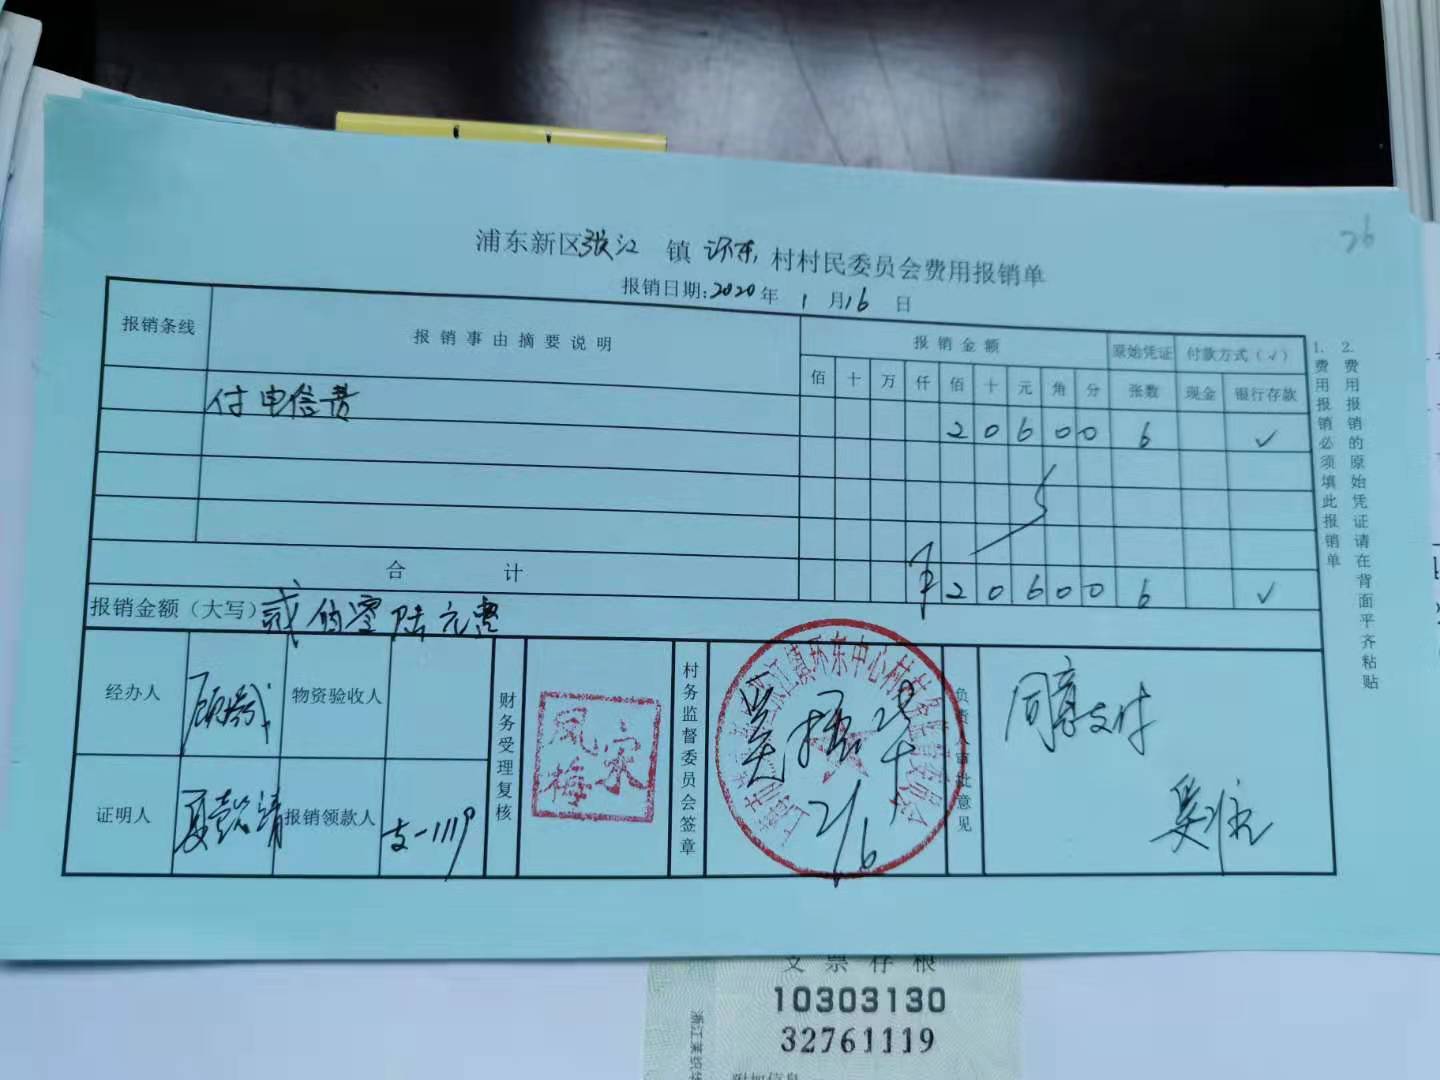 26
浦东新区张江 镇 环东 村村民委员会费用报销单
报销日期:2020年 1 月16 日
报销条线 报销事由摘要说明 报销金额 原始凭证 付款方式(√)
佰 十 万 仟 佰 十 元 角 分 张数 现金 银行存款
付电信费 2 0 6 0 0 6 √
合 计 ¥ 2 0 6 0 0 6 √
报销金额(大写) 贰佰零陆元
经办人 物资验收人
证明人 报销领款人 支-1119
财务受理复核
宋凤梅
村务监督委员会签章
张江镇环东中心村村务监督委员会
2/6
负责人审批意见
同意支付
1. 费用报销必须填此报销单
2. 费用报销的原始凭证请在背面平齐粘贴
支票存根
10303130
32761119
附加信息